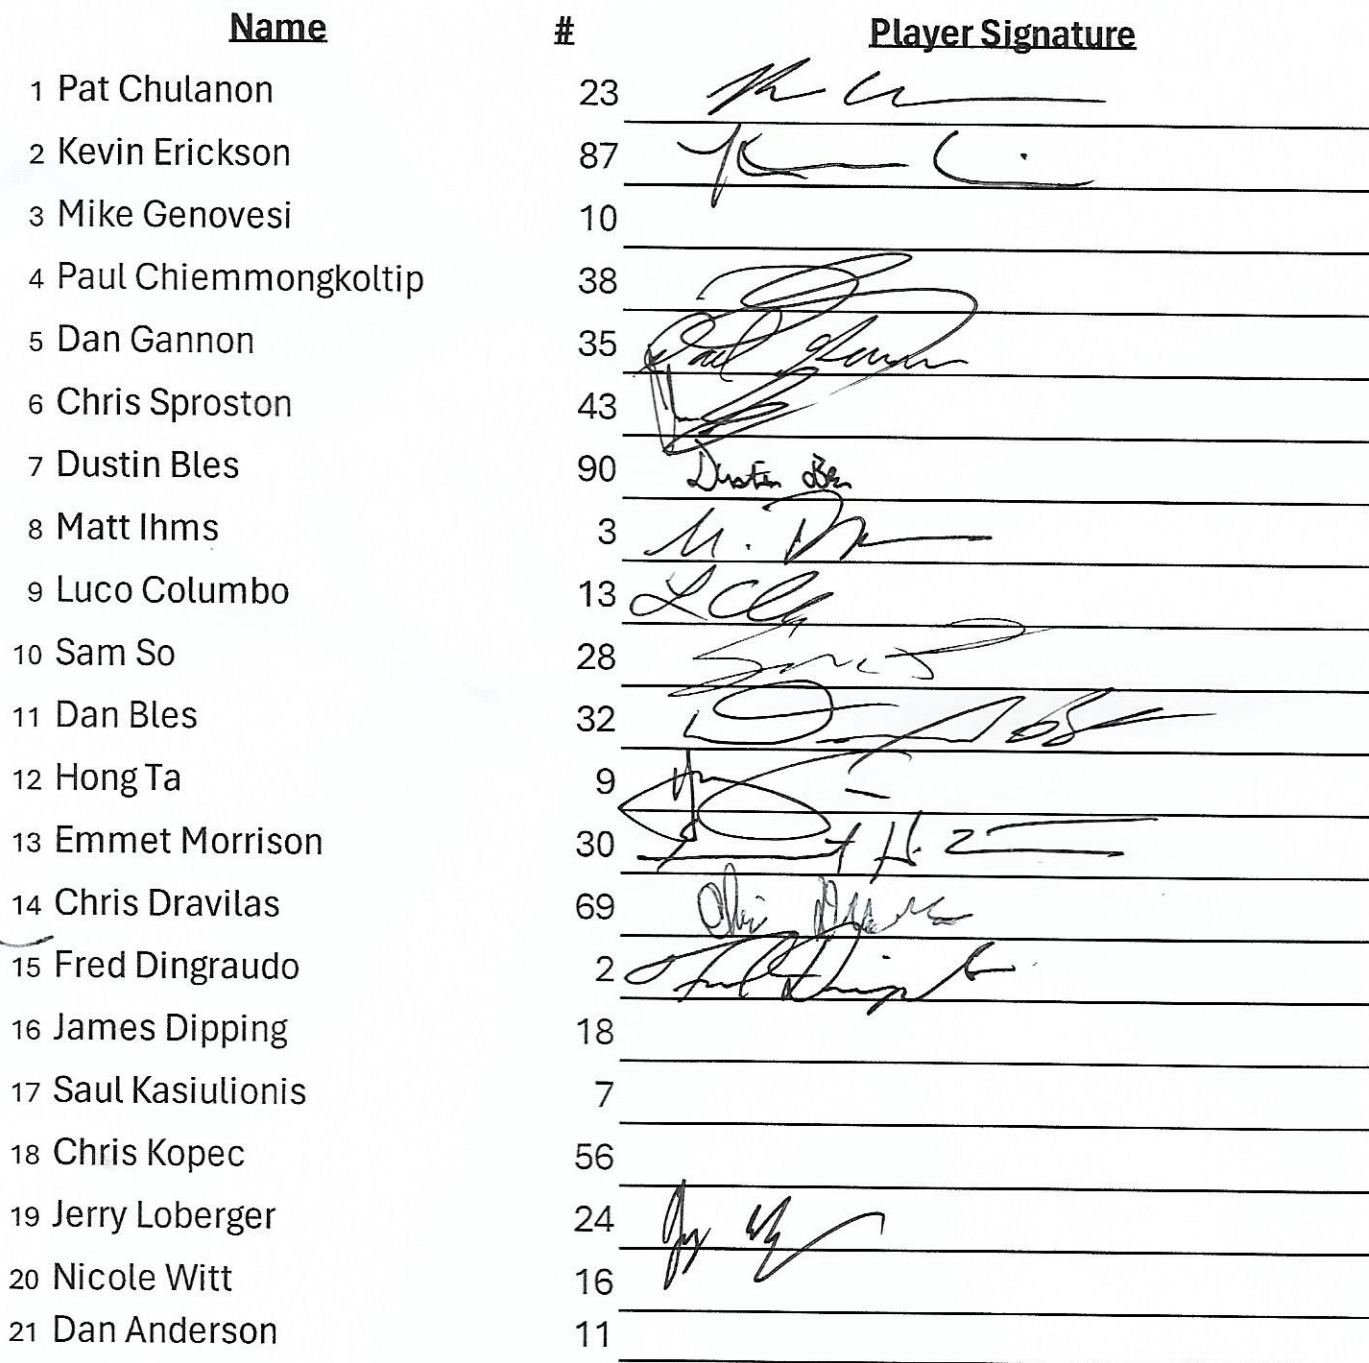 Name # Player Signature
1 Pat Chulanon 23
2 Kevin Erickson 87
3 Mike Genovesi 10
4 Paul Chiemmongkoltip 38
5 Dan Gannon 35
6 Chris Sproston 43
7 Dustin Bles 90 Dustin
8 Matt Ihms 3 M.
9 Luco Columbo 13
10 Sam So 28
11 Dan Bles 32
12 Hong Ta 9
13 Emmet Morrison 30
14 Chris Dravilas 69
15 Fred Dingraudo 2
16 James Dipping 18
17 Saul Kasiulionis 7
18 Chris Kopec 56
19 Jerry Loberger 24
20 Nicole Witt 16
21 Dan Anderson 11